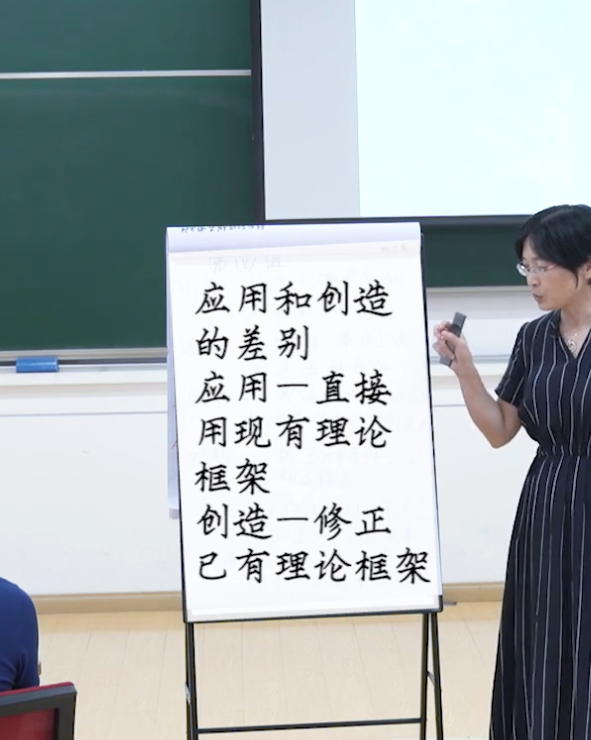 应用和创造
的差别
应用一直接
用现有理论
框架
创造一修正
已有理论框架